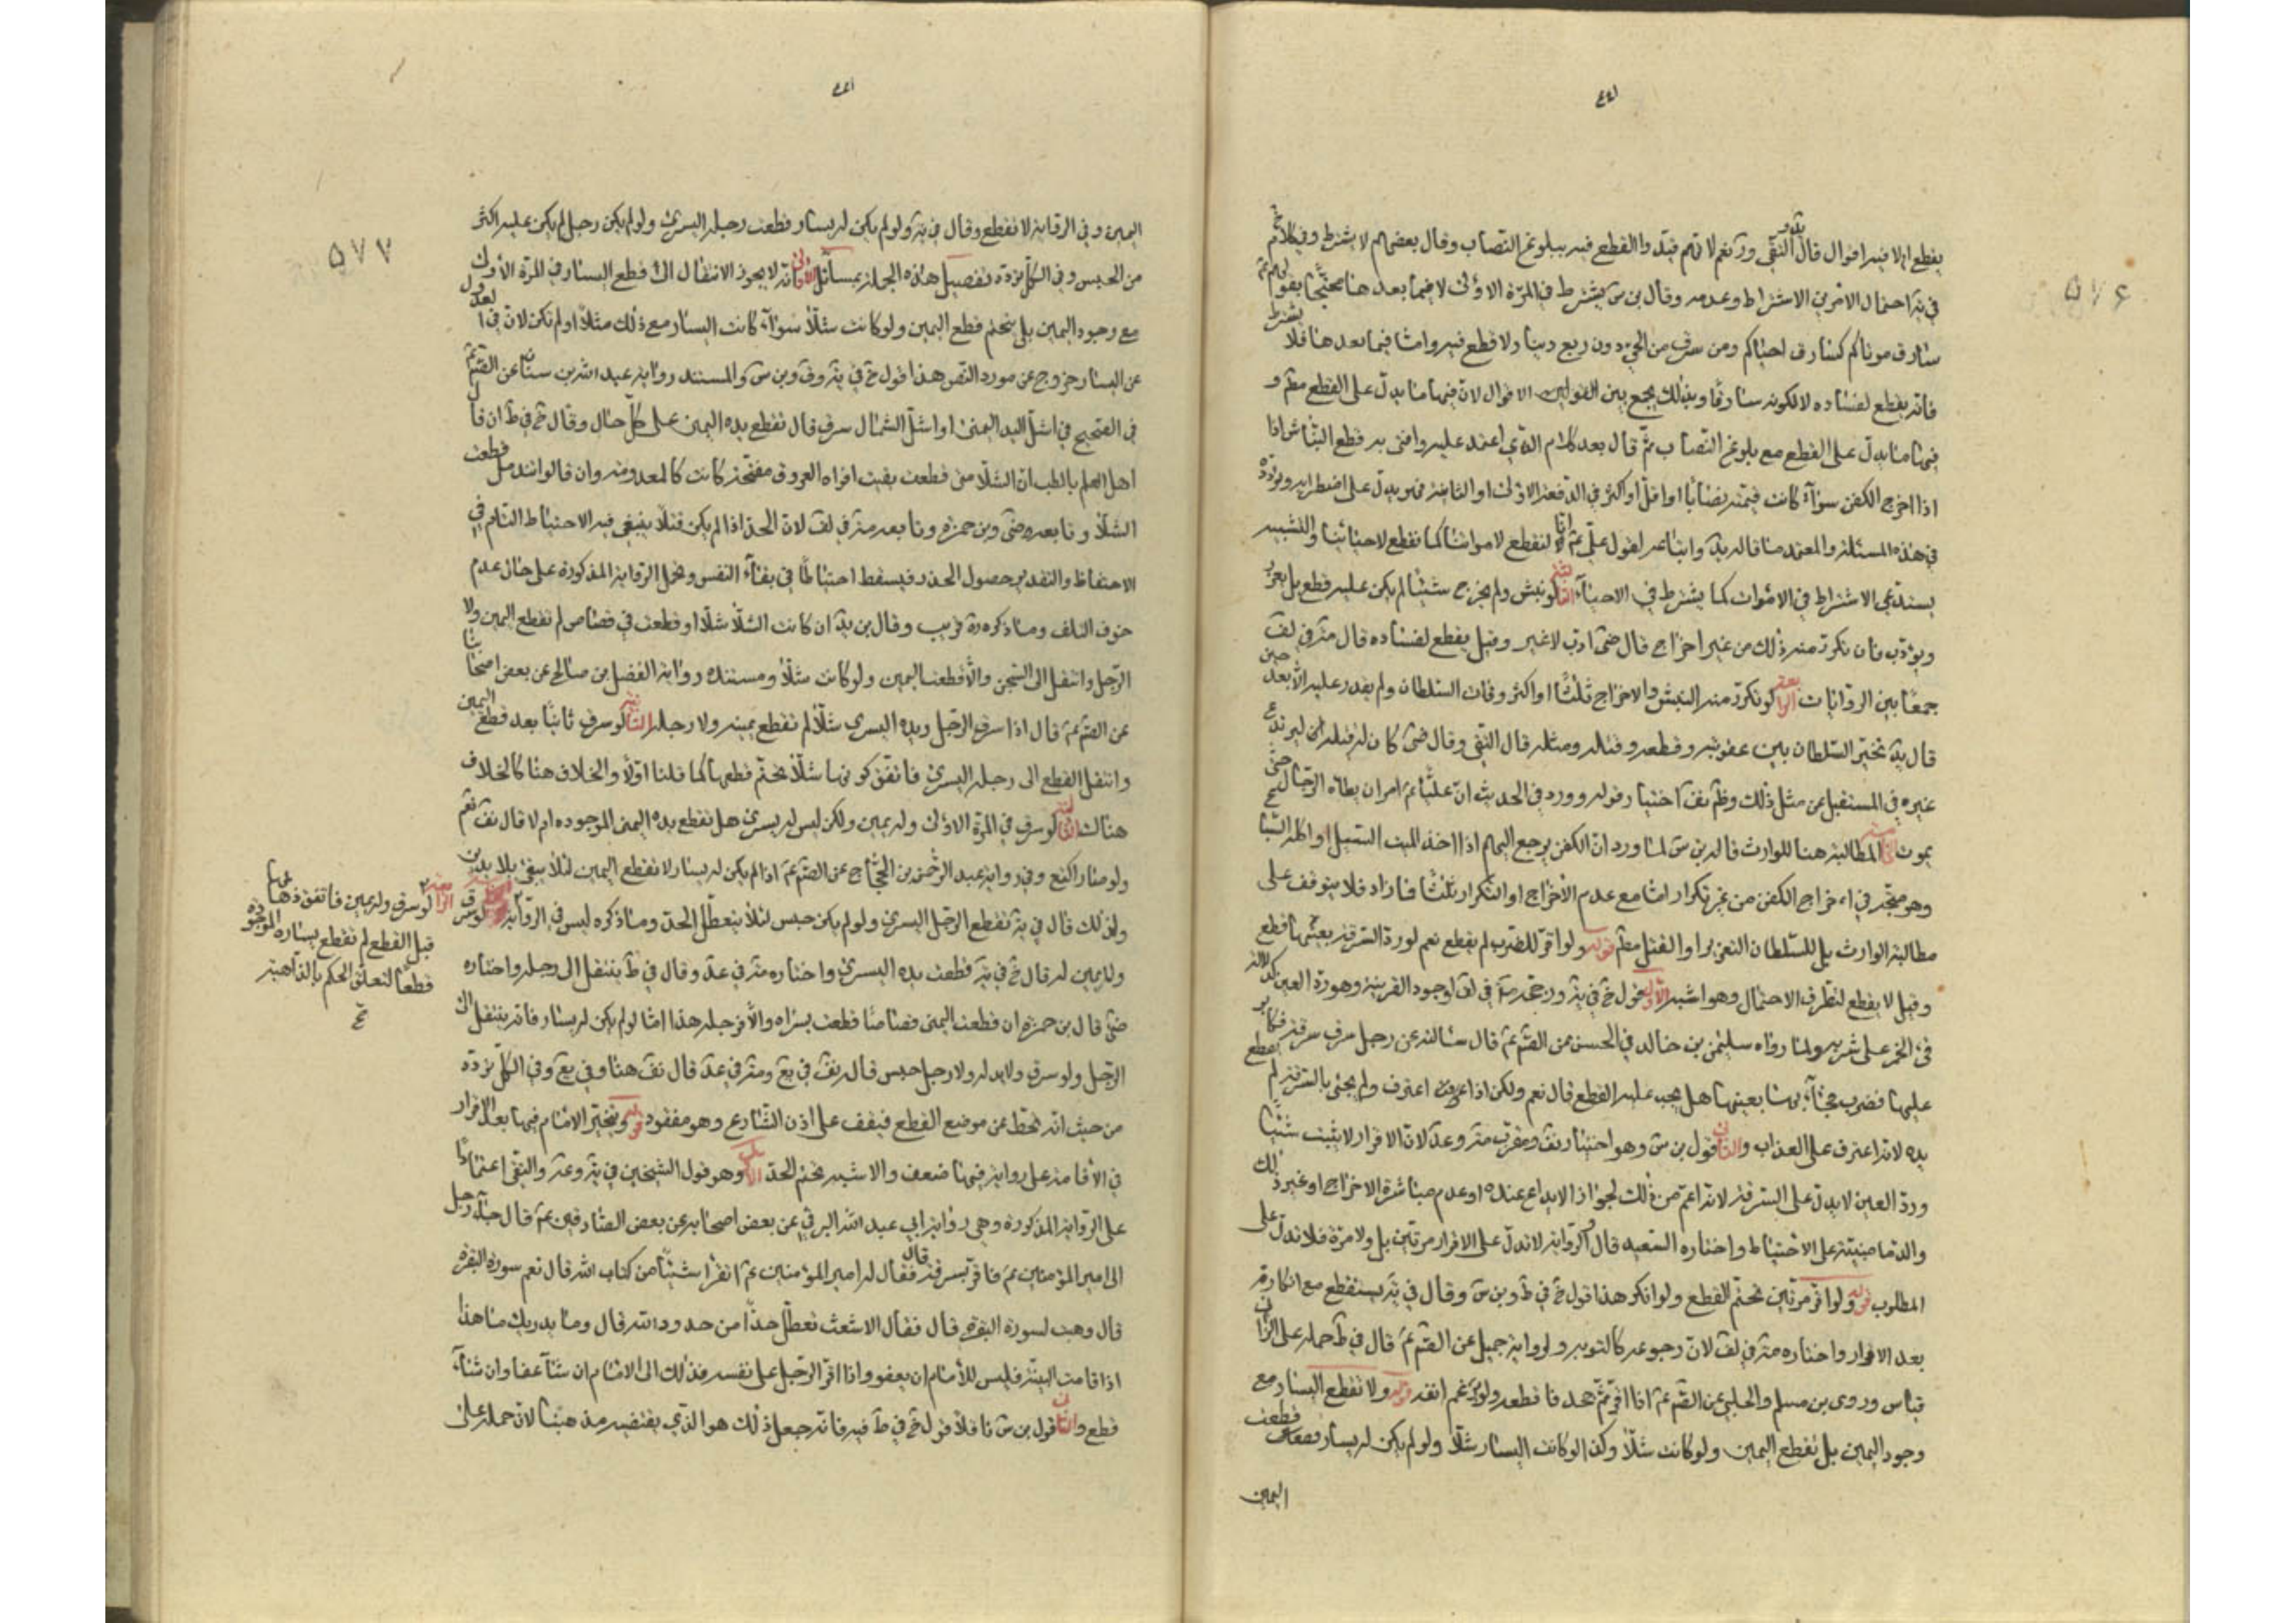 ۵۷۶
يقطع ام لا فيه اقوال قال التقى
فى يه احتمال الامرين الاشتراط وعدمه وقال بن س يشترط فى المرة الاولى لا فيما بعدها محتجا بقولهم ع
سارق موتاكم كسارق احياكم ومن سرق من الحى دون ربع دينار لا قطع فيه واما فيما بعدها فلا يشترط
فانه يقطع لفساده لا لكونه سارقا وبذلك يجمع بين الاقوال لان فيها ما يدل على القطع مط و
فيها ما يدل على القطع مع بلوغ النصاب ثم قال بعد كلام الذى اعتمد عليه وافتى به قطع النباش اذا
اذا اخرج الكفن سواء كانت قيمته نصابا او اقل او اكثر فى الدفعة الاولى او الثانية فهو يدل على اضطرابه وتردده
فى هذه المسئلة والمعتمد ما قاله يد واتباعه لقول على ع انا لنقطع لامواتنا كما نقطع لاحيائنا والتشبيه
يستدعى الاشتراط فى الاموات كما يشترط فى الاحياء لو نبش ولم يخرج شيئا لم يكن عليه قطع بل يعزر
ويؤدب فان تكرر منه ذلك من غير اخراج قال ضى ادب لا غير وقيل يقطع لفساده قال مثر فى لف
جمعا بين الروايات لو تكرر منه النبش والاخراج ثلثا او اكثر وفات السلطان ولم يقدر عليه الا بعد حين
قال يد تخير السلطان بين عقوبته وقطعه وقتله ومثله قال التقى وقال ضى كان له قتله لكى ليرتدع
غيره فى المستقبل عن مثل ذلك وظم نف اختيار قوله وورد فى الحديث ان عليا ع امر ان يطاه الرجال حتى
يموت المطالبة هنا للوارث قاله بن س لما ورد ان الكفن يرجع اليهم اذا اخذ الميت السيل او اكله السبع
وهو متجه فى اخراج الكفن من غير تكرار اما مع عدم الاخراج او التكرار ثلثا فما زاد فلا يتوقف على
مطالبة الوارث بل للسلطان التعزير او القتل مط قوله ولو اقر للضرب لم يقطع نعم لو رد السرقة بعينها قطع
وقيل لا يقطع لتطرق الاحتمال وهو اشبه الاول قول خ فى يه ورجحه مة فى لف لوجود القرينة وهو رد العين كدلالة
قئ الخمر على شربه ولما رواه سليمن بن خالد فى الحسن عن الصم ع قال سالته عن رجل سرق سرقة فكابر
عليها فضرب فجاء بها بعينها هل يجب عليه القطع قال نعم ولكن اذا اعترف ولم يجئ بالسرقة لم يقطع
يده لانه اعترف على العذاب والثانى قول بن س وهو اختيار نف ومقرب مثر وعد لان الاقرار لا يثبت شيئا
ورد العين لا يدل على السرقة لانه اعم من ذلك لجواز الايداع عنده او عدم مباشرة الاخراج او غير ذلك
والدما مبنية على الاحتياط واختاره السعيد قال الرواية لا تدل على الاقرار مرتين بل ولا مرة فلا تدل على
المطلوب قوله ولو اقر مرتين تحتم القطع ولو انكر هذا قول خ فى ط وبن س وقال فى يه يسقط مع انكاره
بعد الاقرار واختاره مثر فى لف لان رجوعه كالتوبه ولرواية جميل عن الصم ع قال فى ط حمله على الزانى
قياس وروى بن مسلم والحلبى عن الصم ع اذا اقر ثم جحد فاقطعه ولو رغم انفه قوله ولا تقطع اليسار مع
وجود اليمين بل تقطع اليمين ولو كانت شلا وكذا لو كانت اليسار شلا ولو لم يكن له يسار قطعت
اليمين
۵۷۷
اليمين وفى الرواية لا تقطع وقال فى يه ولو لم يكن له يسار قطعت رجله اليسرى ولو لم يكن رجل لم يكن عليه اكثر
من الحبس وفى الكل تردد تفصيل هذه الجملة بمسائل الاولى انه لا يجوز الانتقال الى قطع اليسار فى المرة الاولى
مع وجود اليمين بل يتحتم قطع اليمين ولو كانت شلا سواء كانت اليسار مع ذلك مثلا او لم تكن لان فى العدول
عن اليسار خروج عن مورد النص هذا قول خ فى يه وف وبن س والمستند رواية عبد الله بن سنان عن الصم ع
فى الصحيح فى اشل اليد اليمنى او اشل الشمال سرق قال تقطع يده اليمين على كل حال وقال خ فى ط ان قال
اهل العلم بالطب ان الشلا متى قطعت بقيت افواه العروق مفتحة كانت كالمعدومة وان قالوا تندمل قطعت
الشلا وتابعه ضى وبن حمزه وتابعه مثر فى لف لان الحد اذا لم يكن قتلا ينبغى فيه الاحتياط التام فى
الاحتفاظ والتقدير حصول الحذر فيسقط احتياطا فى بقاء النفس وتحمل الرواية المذكورة على حال عدم
خوف التلف وما ذكره مة قريب وقال بن يد ان كانت الشلا شلا او قطعت فى قصاص لم تقطع اليمين ولا
الرجل وانتقل الى السجن والا قطعنا اليمين ولو كانت شلا ومستنده رواية الفضل بن صالح عن بعض اصحابنا
عن الصم ع قال اذا سرق الرجل ويده اليسرى شلا لم تقطع يمينه ولا رجله الثانية لو سرق ثانيا بعد قطع اليمين
وانتقل القطع الى رجله اليسرى فاتفق كونها شلا تحتم قطعها كما قلنا اولا والخلاف هنا كالخلاف
هناك لو سرق فى المرة الاولى وله يمين ولكن ليس له يسرى هل تقطع يده اليمنى الموجوده ام لا قال نف نعم
وفى رواية عبد الرحمن بن الحجاج عن الصم ع اذا لم يكن له يسار لا تقطع اليمين لئلا يبقى بلا يدين
ولذلك قال فى يه تقطع الرجل اليسرى ولو لم يكن حبس لئلا يتعطل الحد وما ذكره ليس فى الرواية لو سرق
ولا يمين له قال خ فى يه قطعت يده اليسرى واختاره مثر فى عد وقال فى ط ينتقل الى رجله واختاره
ضى قال بن حمزه ان قطعت اليمنى قصاصا قطعت يسراه والا فرجله هذا اما لو لم يكن له يسار فانه ينتقل الى
الرجل ولو سرق ولا يد له ولا رجل حبس قاله نف فى يع ومثر فى عد قال نف هنا وفى يع وفى الكل تردد
من حيث انه تخط عن موضع القطع فيقف على اذن الشارع وهو مفقود قوله ويتخير الامام فيها بعد الاقرار
فى الاقامة على رواية فيها ضعف والاشبه تحتم الحد الاول وهو قول الشيخين فى يه وعه والتقى اعتمادا
على الرواية المذكورة وهى رواية ابى عبد الله البرقى عن بعض اصحابه عن بعض الصادقين ع قال جاء رجل
الى امير المؤمنين ع فاقر بسرقة فقال له امير المؤمنين ع اتقرأ شيئا من كتاب الله قال نعم سورة البقرة
قال وهبت لسورة البقره قال فقال الاشعث تعطل حدا من حدود الله قال وما يدريك ما هذا
اذا قامت البينة فليس للأمام ان يعفو واذا اقر الرجل على نفسه فذلك الى الامام ان شاء عفا وان شاء
قطع والثانى قول بن س ناقلا قول خ فى ط فيه فانه جعل ذلك هو الذى يقتضيه مذهبنا لان حمله على
لو سرق وله يمين فاتفق ذهابها
قبل القطع لم تقطع يساره الموجودة
قطعا لتعلق الحكم بالذاهبة